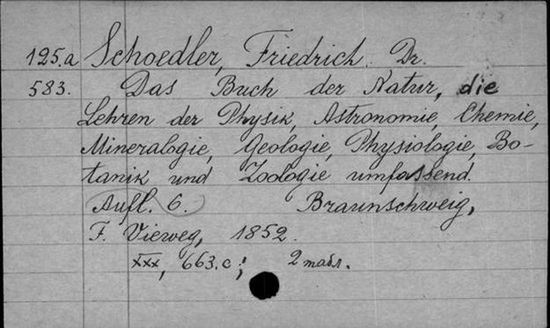 125.a Schoedler, Friedrich Dr.
583. Das Buch der Natur, die
Lehren der Physik, Astronomie, Chemie,
Mineralogie, Geologie, Physiologie, Bo-
tanik und Zoologie umfassend.
Aufl. 6. Braunschweig,
F. Vieweg, 1852.
xxx, 663.c; 2 табл.